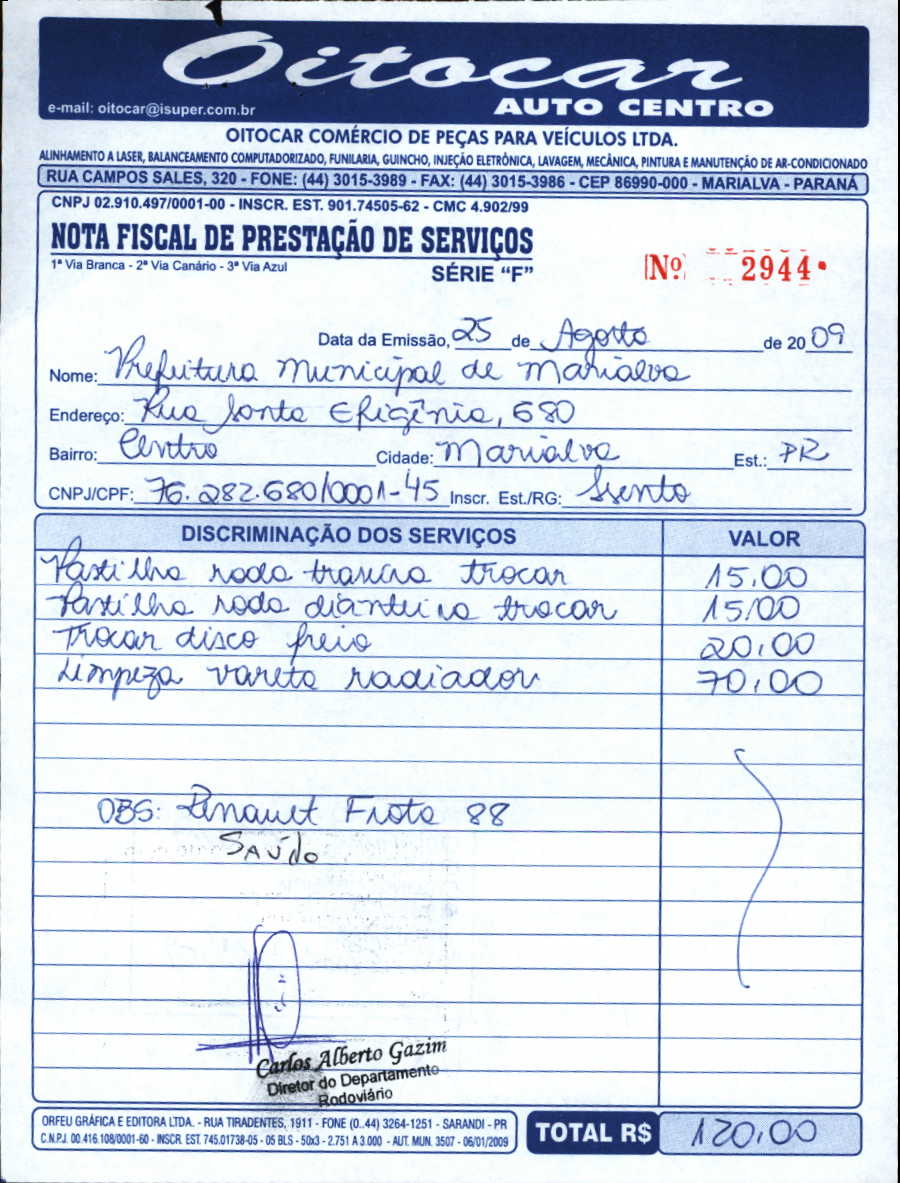 Oitocar
e-mail: oitocar@isuper.com.br
AUTO CENTRO
OITOCAR COMÉRCIO DE PEÇAS PARA VEÍCULOS LTDA.
ALINHAMENTO A LASER, BALANCEAMENTO COMPUTADORIZADO, FUNILARIA, GUINCHO, INJEÇÃO ELETRÔNICA, LAVAGEM, MECÂNICA, PINTURA E MANUTENÇÃO DE AR-CONDICIONADO
RUA CAMPOS SALES, 320 - FONE: (44) 3015-3989 - FAX: (44) 3015-3986 - CEP 86990-000 - MARIALVA - PARANÁ
CNPJ 02.910.497/0001-00 - INSCR. EST. 901.74505-62 - CMC 4.902/99
NOTA FISCAL DE PRESTAÇÃO DE SERVIÇOS
1ª Via Branca - 2ª Via Canário - 3ª Via Azul
SÉRIE "F"
Nº 2944
Data da Emissão, 25 de Agosto de 2009
Nome: Prefeitura Municipal de Marialva
Endereço: Rua Santa Efigênia, 680
Bairro: Centro Cidade: Marialva Est.: PR
CNPJ/CPF: 76.282.680/0001-45 Inscr. Est./RG: Isento
DISCRIMINAÇÃO DOS SERVIÇOS VALOR
Pastilha roda traseira trocar 15,00
Pastilha roda dianteira trocar 15,00
Trocar disco freio 20,00
Limpeza vareta radiador 70,00
OBS: Renault Frota 88
Saúde
Carlos Alberto Gazim
Diretor do Departamento
Rodoviário
ORFEU GRÁFICA E EDITORA LTDA. - RUA TIRADENTES, 1911 - FONE (0..44) 3264-1251 - SARANDI - PR
C.N.P.J. 00.416.108/0001-60 - INSCR. EST. 745.01738-05 - 05 BLS - 50x3 - 2.751 A 3.000 - AUT. MUN. 3507 - 06/01/2009
TOTAL R$ 120,00